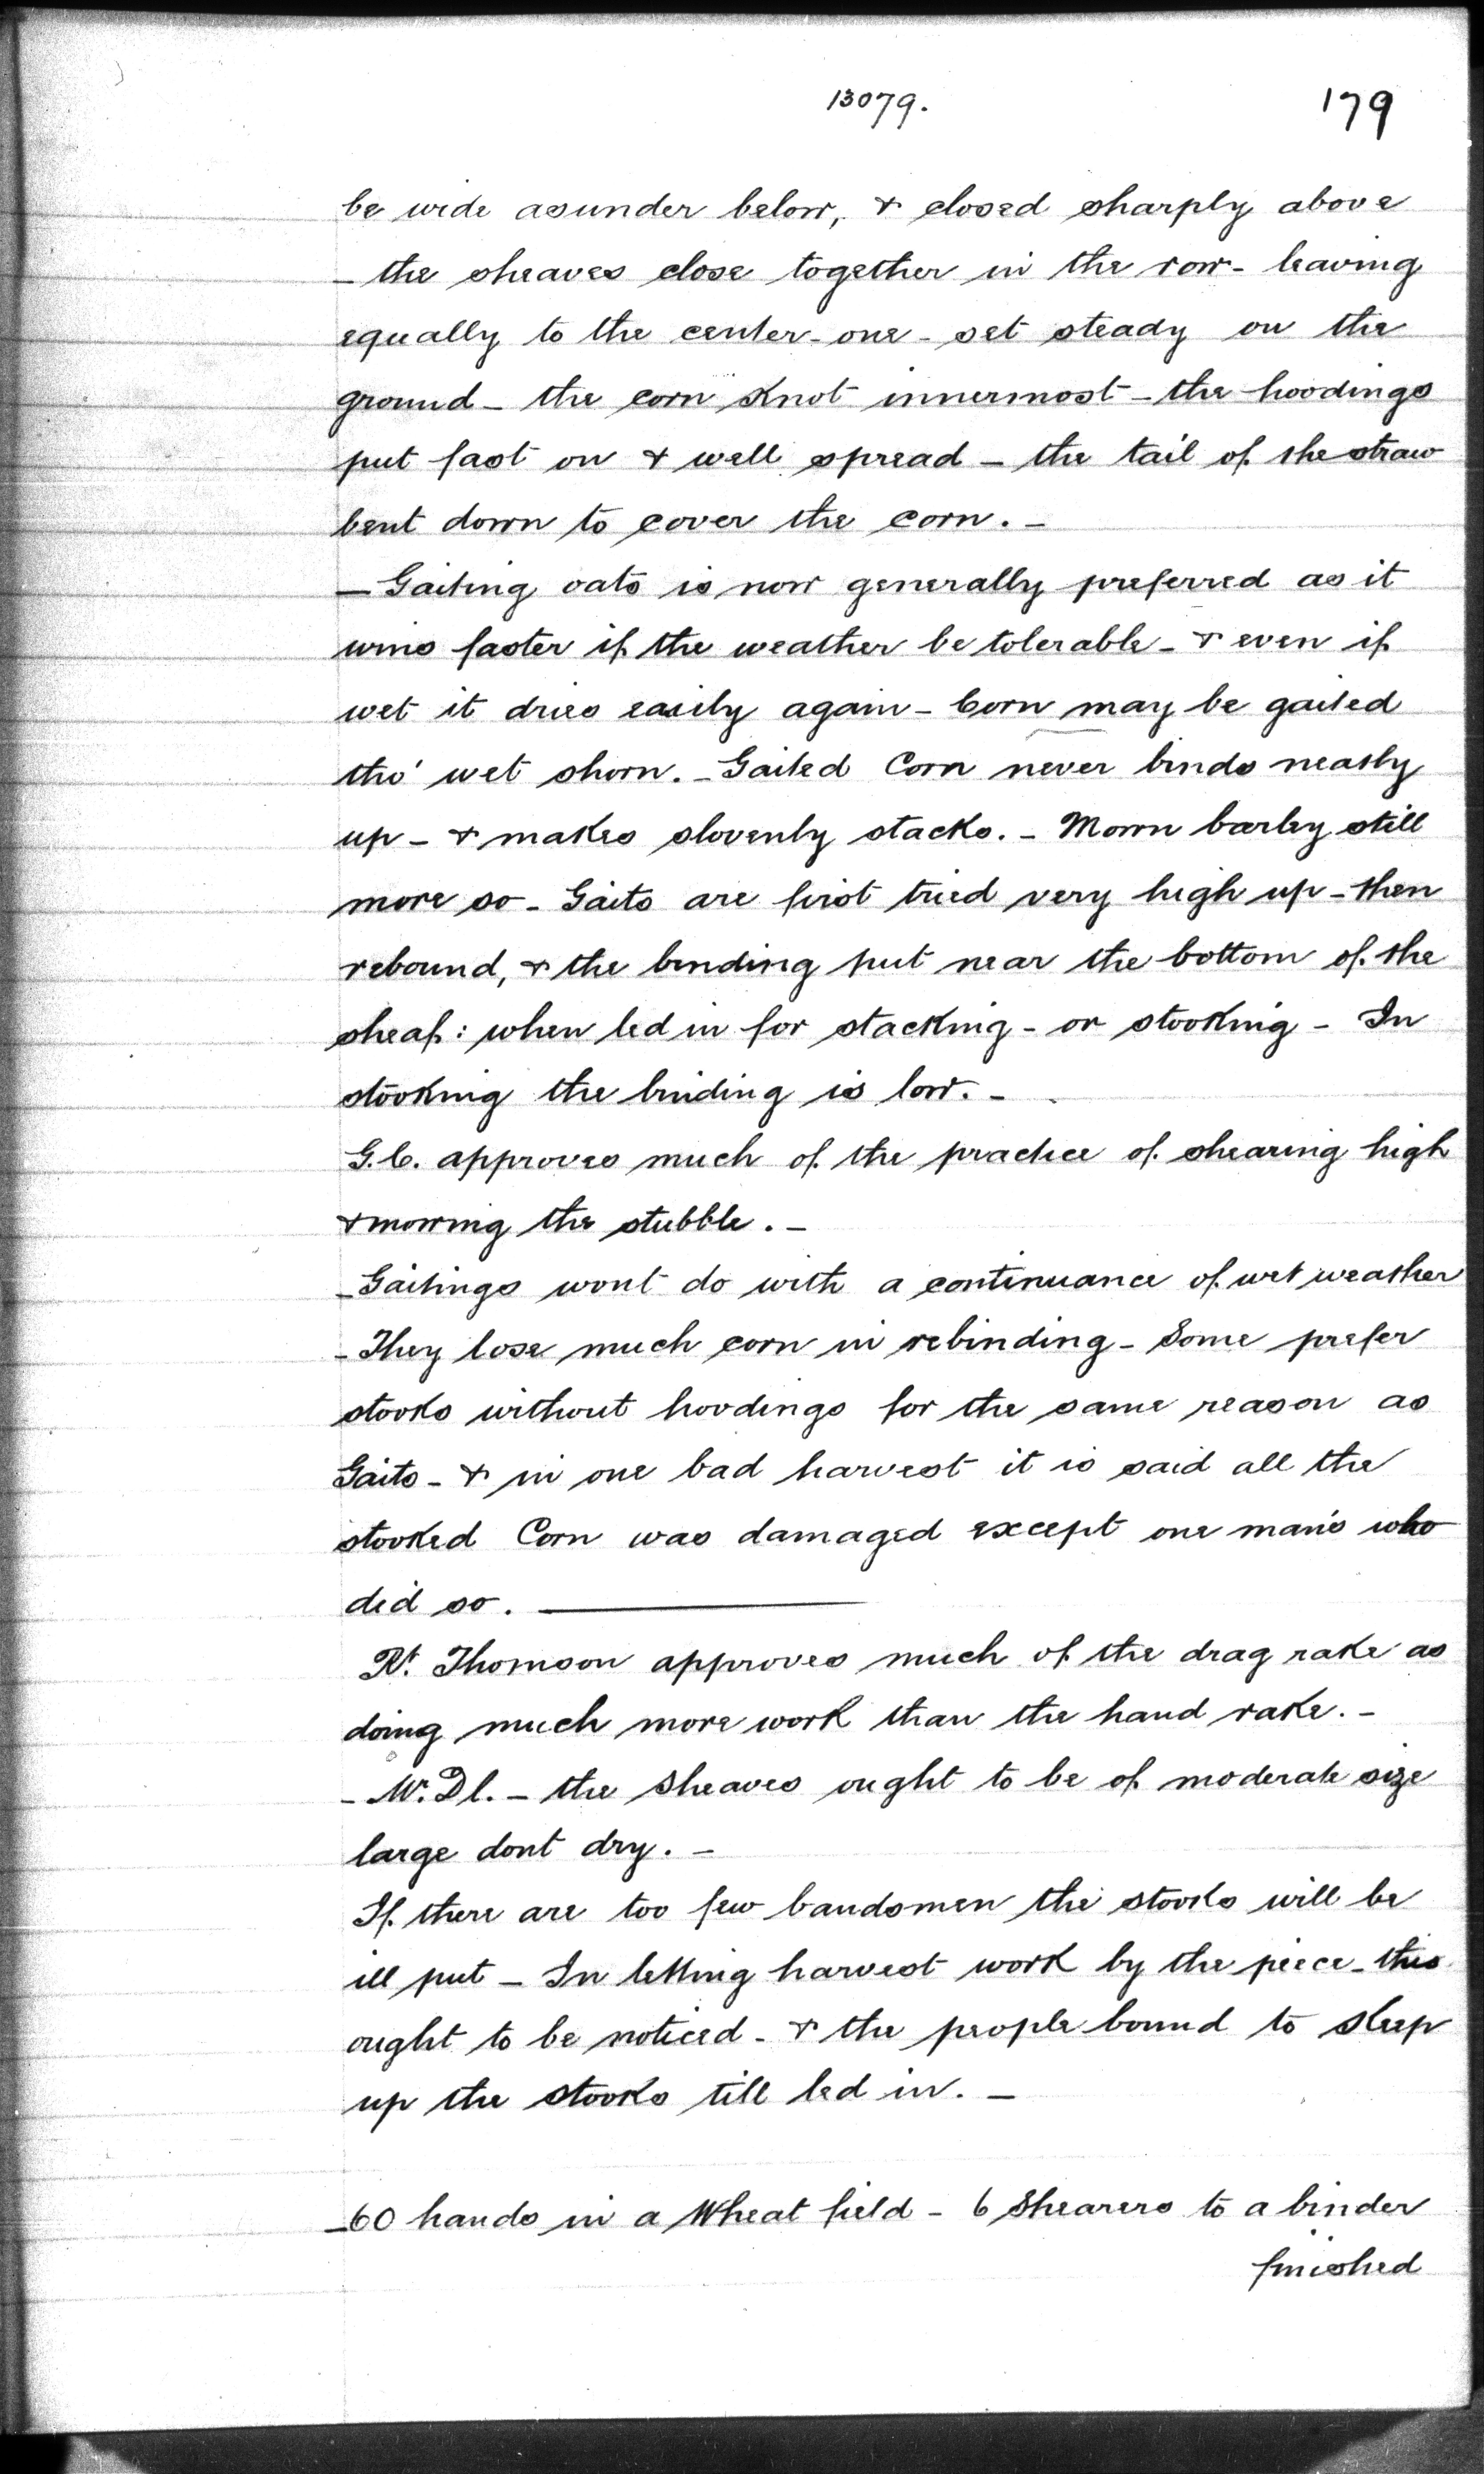 13079.
179
be wide asunder below, & closed sharply above
- the sheaves close together in the row - leaving
equally to the center - one - set steady on the
ground - the corn knot innermost - the hoodings
put fast on & well spread - the tail of the straw
bent down to cover the corn. -
- Gaiting oats is now generally preferred as it
wins faster if the weather be tolerable - & even if
wet it dries easily again - Corn may be gaited
tho' wet shorn. - Gaited Corn never binds neatly
up - & makes slovenly stacks. - Mown barley still
more so - Gaits are first tried very high up - then
rebound, & the binding put near the bottom of the
sheaf: when led in for stacking - or stooking - In
stooking the binding is low. -
G.C. approves much of the practice of shearing high
& mowing the stubble. -
- Gaitings wont do with a continuance of wet weather
- They lose much corn in rebinding - Some prefer
stooks without hoodings for the same reason as
Gaits - & in one bad harvest it is said all the
stooked Corn was damaged except one man's who
did so.
Rt. Thomson approves much of the drag rake as
doing much more work than the hand rake. -
- W. Dl. - the sheaves ought to be of moderate size
large dont dry. -
If there are too few bandsmen the stooks will be
ill put - In letting harvest work by the piece - this
ought to be noticed - & the people bound to keep
up the stooks till led in. -
- 60 hands in a Wheat field - 6 Shearers to a binder
finished